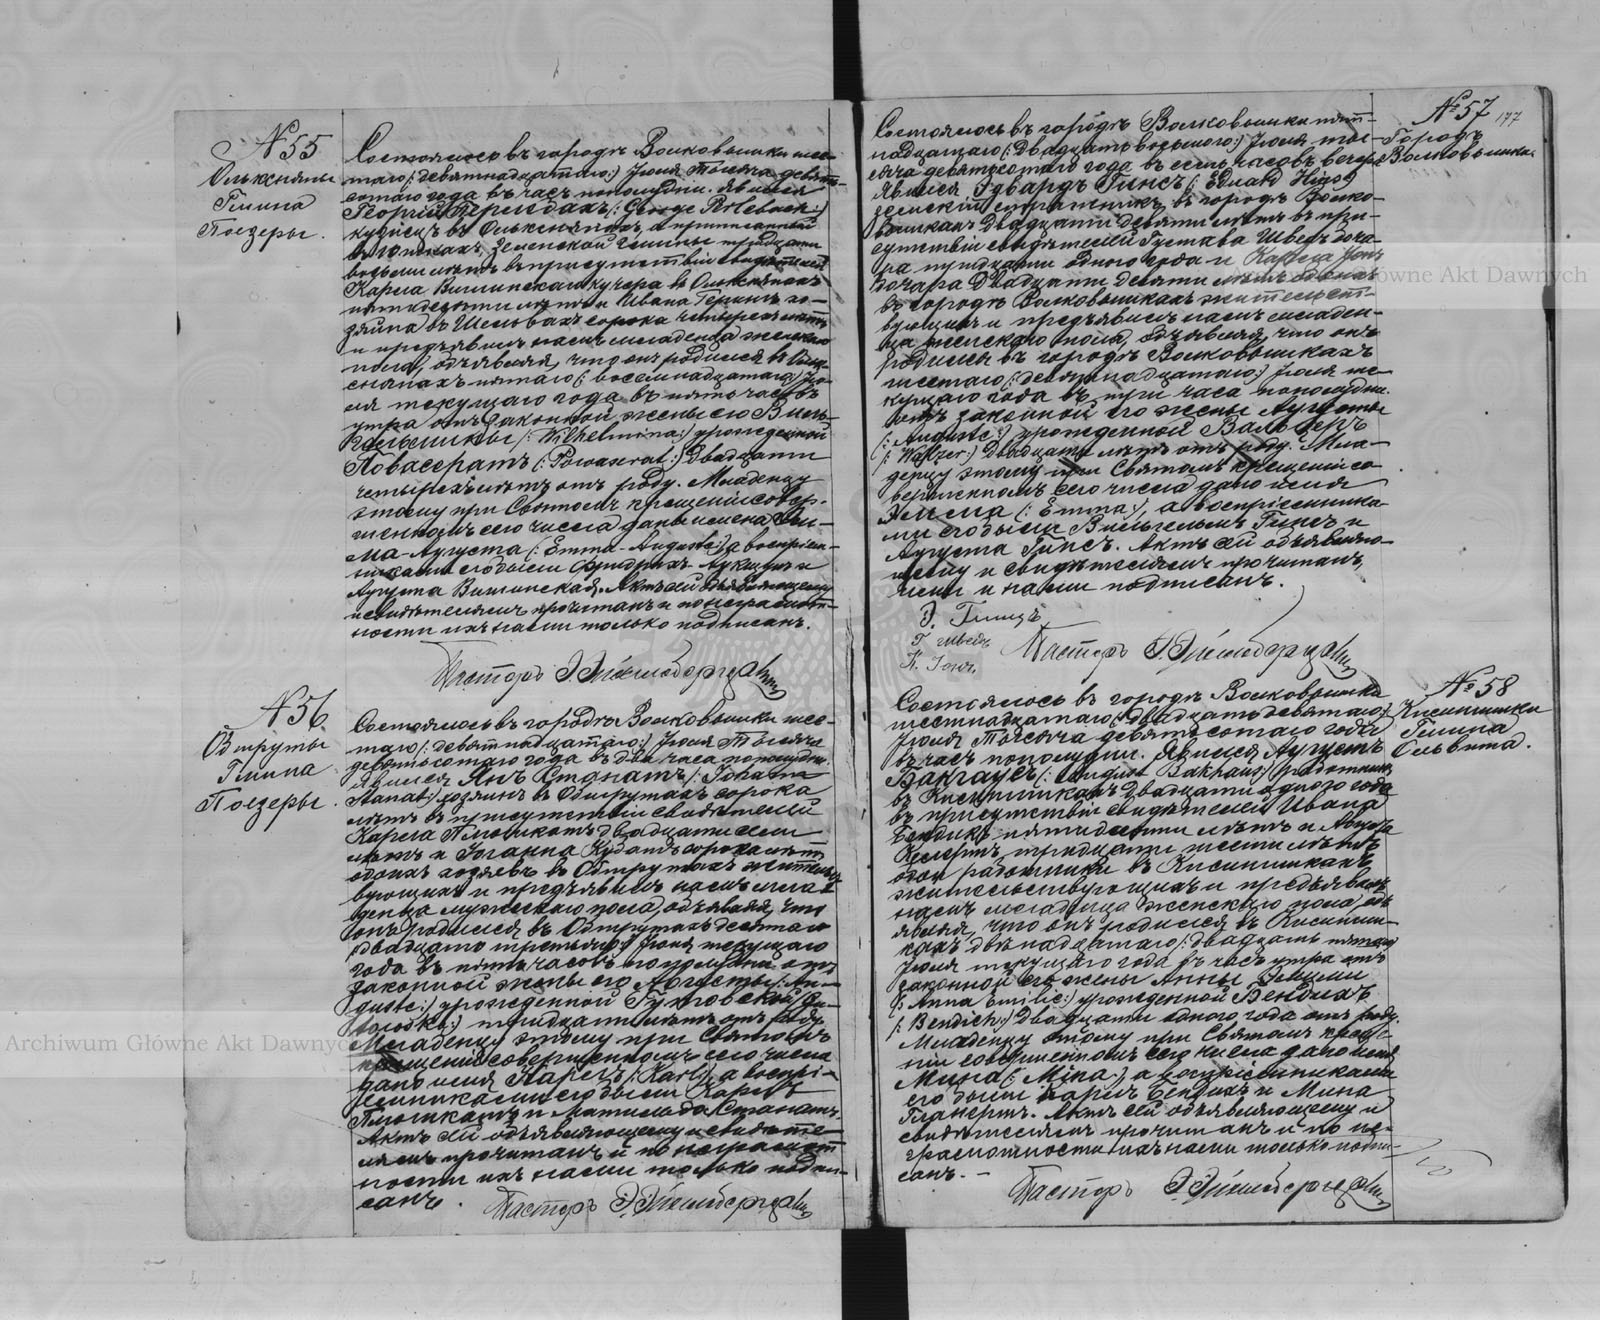 № 55
Ольксняны
Гмина
Поезеры.
Состоялось въ городѣ Волковышки шес-
таго (: девятнадцатаго:) Іюля Тысяча девять-
сотаго года въ часъ пополудни. Явился
Георгій Перлебахъ (: George Perlebach:)
кузнецъ въ Олькснянахъ, а приписанный
Зеленской Гмины тридцати
восьми лѣтъ въ присутствіи свидѣтелей
Карла Вишинскаго кучера въ Олькснянахъ
пятидесяти лѣтъ и Ивана Геринъ хо-
зяина въ Шельвахъ сорока четырехъ лѣтъ
и предъявилъ намъ младенца женскаго
пола, объявляя, что онъ родился въ Оль-
кснянахъ пятаго (: восемнадцатаго:) Ію-
ля текущаго года въ пять часовъ
утра отъ законной жены его Виль-
гельмины (: Wilhelmina:) урожденной
Повасератъ (: Powaserat:) двадцати
четырехъ лѣтъ отъ роду. Младенцу
этому при Святомъ крещеніи совер-
шенномъ сего числа даны имена Эм-
ма-Августа (: Emma-Auguste:) а воспріем-
никами его были
Августа Вишинская. Актъ сей объявляющему
и свидѣтелямъ прочитанъ и по неграмот-
ности ихъ нами только подписанъ.
Пасторъ
№ 56
Обшруты
Гмина
Поезеры.
Состоялось въ городѣ Волковышки шес-
таго (: девятнадцатаго:) Іюля Тысяча
девятьсотаго года въ два часа пополудни.
Явился Янъ Станатъ (: Johann
Stanat:) хозяинъ въ Обшрутахъ сорока
лѣтъ въ присутствіи свидѣтелей
Карла Плошкатъ двадцати семи
лѣтъ и Іоганна Кубатъ сорока лѣтъ
обоихъ хозяевъ въ Обшрутахъ жительст-
вующихъ и предъявилъ намъ мла-
денца мужескаго пола, объявляя, что
онъ родился въ Обшрутахъ десятаго
(: двадцать третьяго:) Іюня текущаго
года въ пять часовъ пополудни отъ
законной жены его Августы (: Au-
guste:) урожденной
тридцати лѣтъ отъ роду.
Младенцу этому при Святомъ
крещеніи совершенномъ сего числа
дано имя Карлъ (: Karl:), а воспрі-
емниками его были Карлъ
Плошкатъ и Матильда Станатъ.
Актъ сей объявляющему и свидѣте-
лямъ прочитанъ и по неграмот-
ности ихъ нами только подпи-
санъ.
Пасторъ
№ 57
177
Городъ
Волковышки
Состоялось въ городѣ Волковышки пят-
надцатаго (: двадцать восьмого:) Іюля тыс-
яча девятьсотаго года въ семь часовъ вечера
Явился Эдвардъ Гинсъ (: Eduard Hinz:)
земскій стражникъ въ городѣ Волко-
вышкахъ двадцати девяти лѣтъ въ при-
сутствіи свидѣтелей Густава Шведъ боча-
ра тридцати одного года и Карла Іонъ
бочара двадцати девяти лѣтъ обоихъ
въ городѣ Волковышкахъ жительст-
вующихъ и предъявилъ намъ младен-
ца женскаго пола, объявляя, что онъ
родился въ городѣ Волковышкахъ
шестаго (: девятнадцатаго:) Іюля те-
кущаго года въ три часа пополудни
отъ законной его жены Августы
(: Auguste:) урожденной Вальцеръ
(: Walzer:) двадцати лѣтъ отъ роду. Мла-
денцу этому при Святомъ крещеніи со
вершенномъ сего числа дано имя
Эмма (: Emma:), а воспріемника-
ми его были Вильгельмъ Гинсъ и
Августа Гинсъ. Актъ сей объявляю-
щему и свидѣтелямъ прочитанъ,
ими и нами подписанъ.
Э. Гинцъ
Г. Шведъ
К. Іонъ.
Пасторъ
№ 58
Гмина
Ольвита.
Состоялось въ городѣ Волковышки
шестнадцатаго (: двадцать девятаго:)
Іюля Тысяча девятьсотаго года
въ часъ пополудни. Явился Августъ
Бакгаузъ (: August Bakhaus:) работникъ
въ двадцати одного года
въ присутствіи свидѣтелей Ивана
Бендихъ пятидесяти лѣтъ и
тридцати шести лѣтъ
оба работники въ
жительствующихъ и предъявилъ
намъ младенца женскаго пола, объ-
являя, что онъ родился въ
двѣнадцатаго (: двадцать пятаго:)
Іюля текущаго года въ часъ утра отъ
законной его жены Анны Эмиліи
(: Anna Emilie:) урожденной Бендихъ
(: Bendich:) двадцати одного года отъ роду.
Младенцу этому при Святомъ креще-
ніи совершенномъ сего числа дано имя
Мина (: Mina:), а воспріемниками
его были Карлъ Бендихъ и Мина
Гланертъ. Актъ сей объявляющему и
свидѣтелямъ прочитанъ и по не-
грамотности ихъ нами только подпи-
санъ. –
Пасторъ
Archiwum Główne Akt Dawnych
Archiwum Główne Akt Dawnych